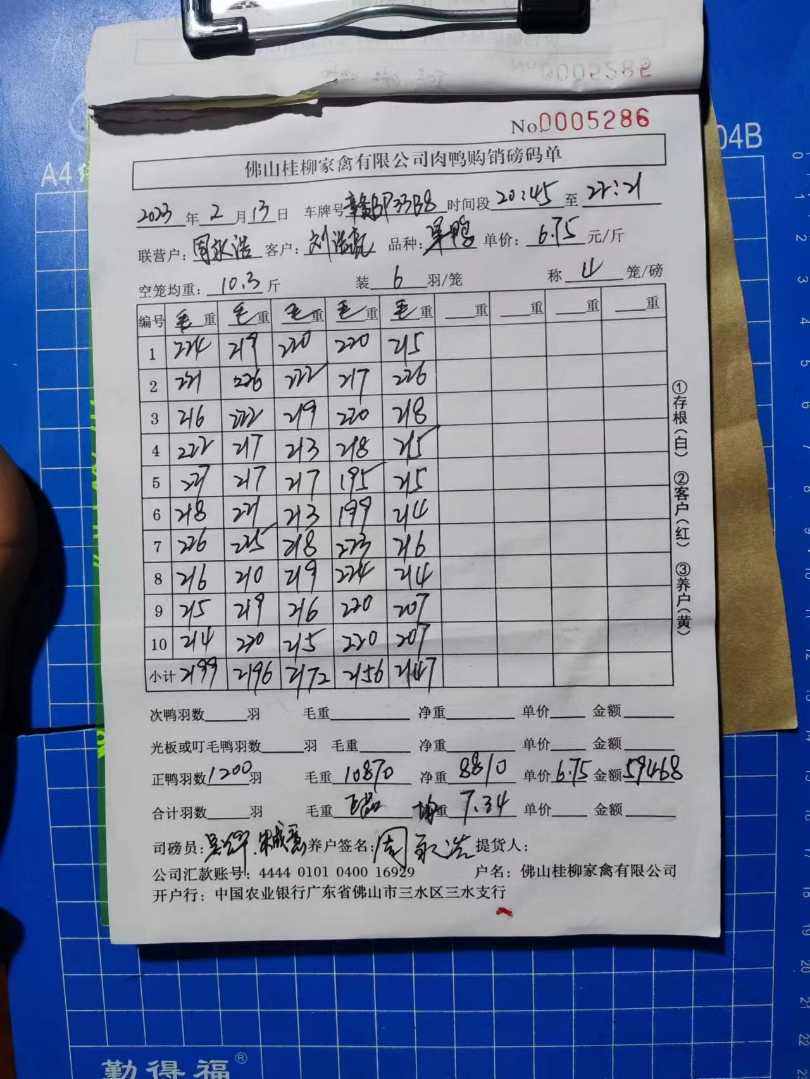 0005286
A4
04B
No.0005286
佛山桂柳家禽有限公司肉鸭购销磅码单
2023年2月13日 车牌号 时间段20:45至22:21
联营户：周永浩 客户： 品种： 单价：6.75元/斤
空笼均重：10.3斤 装6羽/笼 称4笼/磅
编号 毛重 毛重 毛重 毛重 毛重 重 重 重 重
1 224 219 220 220 215
2 221 226 222 217 226
3 216 222 219 220 218
4 222 217 213 218 215
5 227 217 217 195 215
6 218 221 213 199 214
7 226 225 218 223 216
8 216 210 219 224 214
9 215 219 216 220 207
10 214 220 215 220 207
小计 2199 2196 2172 2156 2147
①存根（白） ②客户（红） ③养户（黄）
次鸭羽数 羽 毛重 净重 单价 金额
光板或叮毛鸭羽数 羽 毛重 净重 单价 金额
正鸭羽数1200羽 毛重10870 净重8810 单价6.75 金额59468
合计羽数 羽 毛重 均重7.34 单价 金额
司磅员： 养户签名：周永浩 提货人：
公司汇款账号：4444 0101 0400 16929 户名：佛山桂柳家禽有限公司
开户行：中国农业银行广东省佛山市三水区三水支行
勤得福®